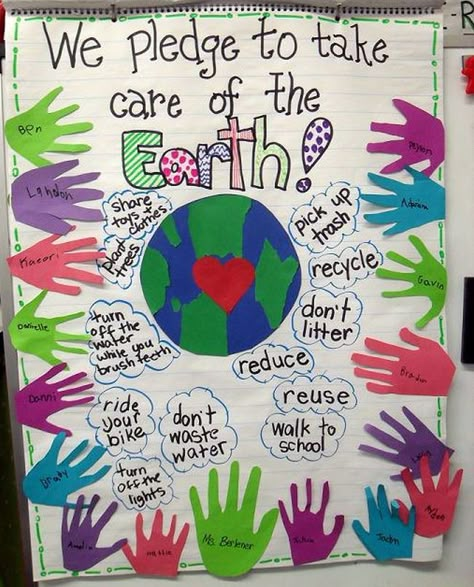 We pledge to take
care of the
Earth!
share
toys +
clothes
plant
trees
turn
off the
water
while you
brush teeth
ride
your
bike
don't
waste
water
turn
off the
lights
pick up
trash
recycle
don't
litter
reduce
reuse
walk to
school
Ben
Landon
Kaeori
Danielle
Danni
Brady
Amelia
Ms. Berkener
Jadyn
Brandon
Gavin
Adriana
Peyton